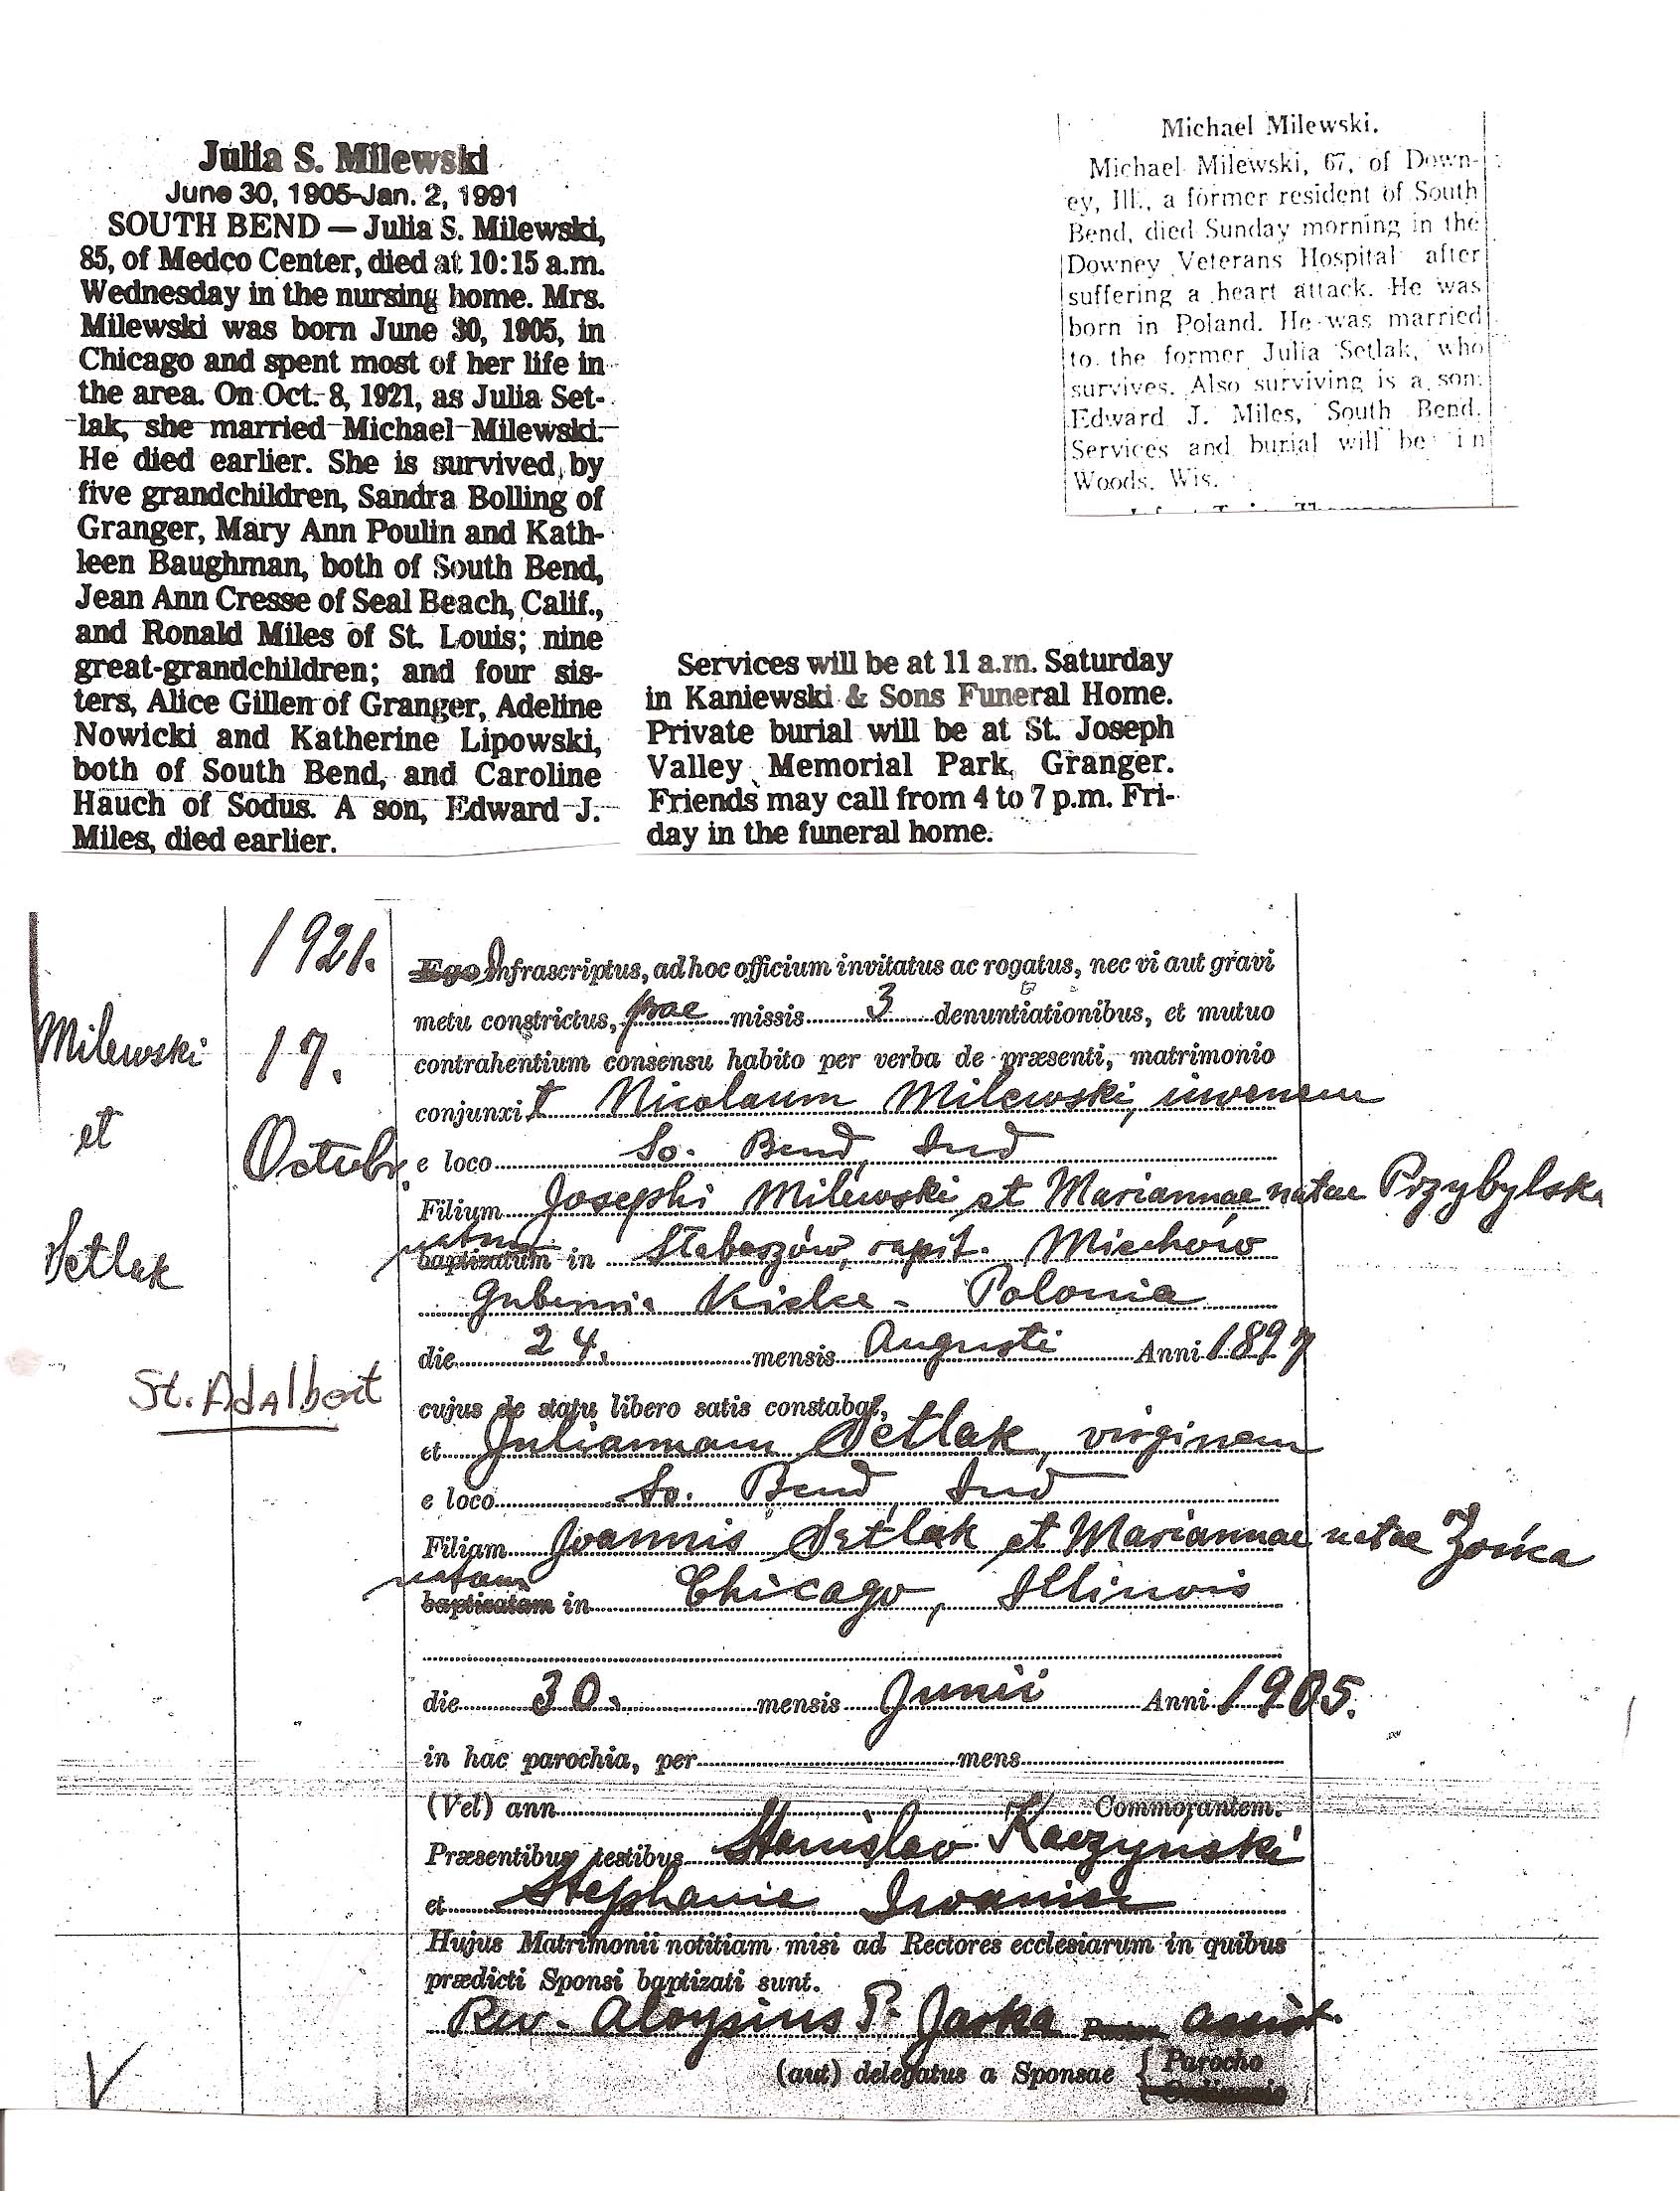 Julia S. Milewski
June 30, 1905-Jan. 2, 1991
SOUTH BEND — Julia S. Milewski,
85, of Medco Center, died at 10:15 a.m.
Wednesday in the nursing home. Mrs.
Milewski was born June 30, 1905, in
Chicago and spent most of her life in
the area. On Oct. 8, 1921, as Julia Set-
lak, she married Michael Milewski.
He died earlier. She is survived by
five grandchildren, Sandra Bolling of
Granger, Mary Ann Poulin and Kath-
leen Baughman, both of South Bend,
Jean Ann Cresse of Seal Beach, Calif.,
and Ronald Miles of St. Louis; nine
great-grandchildren; and four sis-
ters, Alice Gillen of Granger, Adeline
Nowicki and Katherine Lipowski,
both of South Bend, and Caroline
Hauch of Sodus. A son, Edward J.
Miles, died earlier.
Services will be at 11 a.m. Saturday
in Kaniewski & Sons Funeral Home.
Private burial will be at St. Joseph
Valley Memorial Park, Granger.
Friends may call from 4 to 7 p.m. Fri-
day in the funeral home.
Michael Milewski.
Michael Milewski, 67, of Down-
ey, Ill., a former resident of South
Bend, died Sunday morning in the
Downey Veterans Hospital after
suffering a heart attack. He was
born in Poland. He was married
to the former Julia Setlak, who
survives. Also surviving is a son,
Edward J. Miles, South Bend.
Services and burial will be in
Woods, Wis.
Milewski
et
Setlak
1921.
17.
Octobr.
St. Adalbert
Ego Infrascriptus, ad hoc officium invitatus ac rogatus, nec vi aut gravi
metu constrictus, prae missis 3 denuntiationibus, et mutuo
contrahentium consensu habito per verba de præsenti, matrimonio
conjunxit Nicolaum Milewski, iuvenem
e loco So. Bend, Ind
Filium Josephi Milewski et Mariannae natae Przybylska
natum
baptizatum in Słaboszów, Miechów
Gubernia Kielce - Polonia
die 24. mensis Augusti Anni 1897
cujus de statu libero satis constabat,
et Juliannam Setlak, virginem
e loco So. Bend Ind
Filiam Joannis Setlak et Mariannae natae
natam
baptizatam in Chicago, Illinois
die 30. mensis Junii Anni 1905.
in hac parochia, per mens
(Vel) ann Commorantem.
Præsentibus testibus Stanislao Kaczynski
et Stephania
Hujus Matrimonii notitiam misi ad Rectores ecclesiarum in quibus
prædicti Sponsi baptizati sunt.
Rev. Aloysius P. Jaska assist.
(aut) delegatus a Sponsae { Parocho